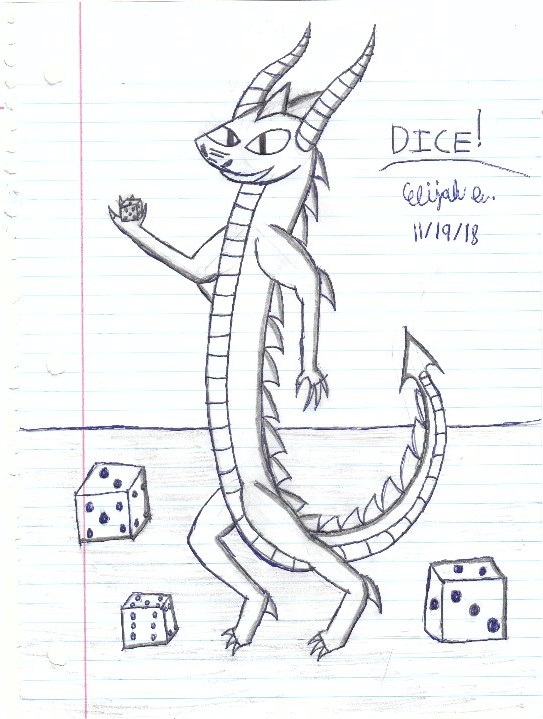 DICE!
Elijah E.
11/19/18